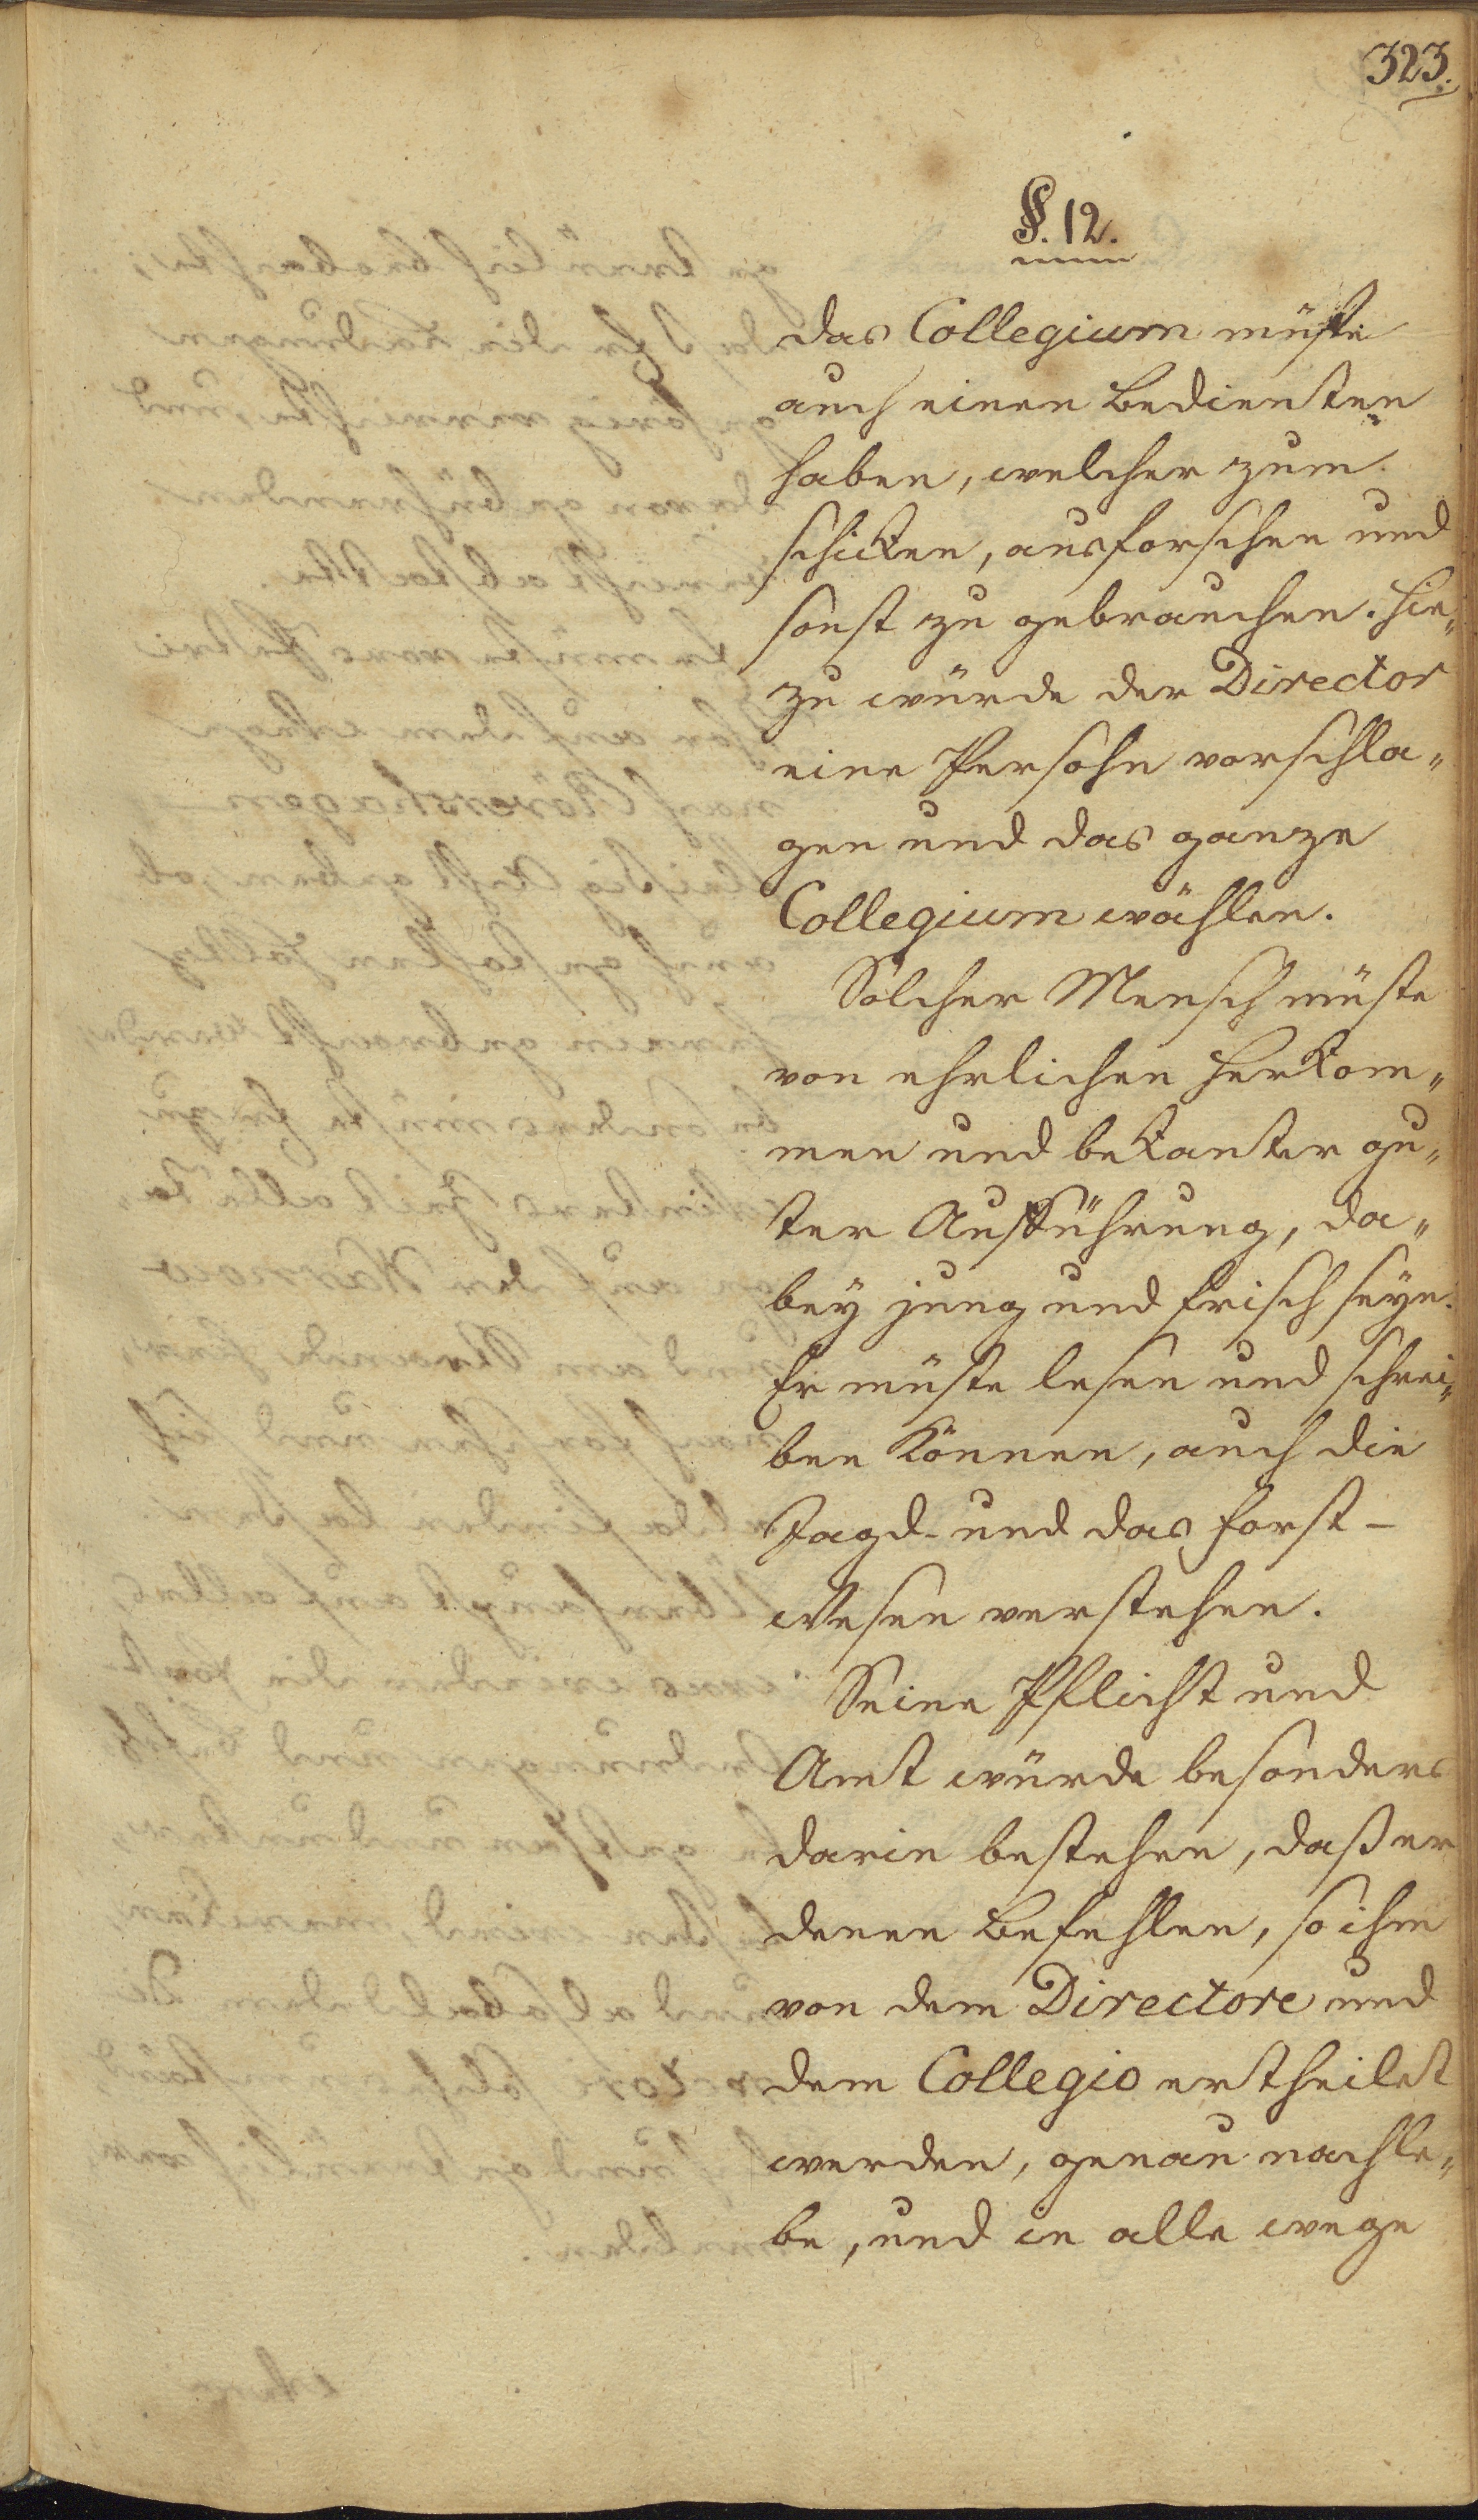 323.
§. 12.
das Collegium müste
auch einen Bedienten
haben, welcher zum
schicken, ausforschen und
sonst zu gebrauchen. Hie„
zu würde der Director
eine Persohn vorschla„
gen und das ganze
Collegium wählen.
Solcher Mensch müste
von ehrlichen Herkom„
men und bekanter gu„
ter Aufführung, da„
bey jung und frisch seyn.
Er müste lesen und schrei„
ben können, auch die
Jagd- und das Forst-
Wesen verstehen.
Seine Pflicht und
Amt würde besonders
darin bestehen, daß er
denen Befehlen, so ihm
von dem Directore und
dem Collegio ertheilet
werden, genau nachle„
be, und in alle wege